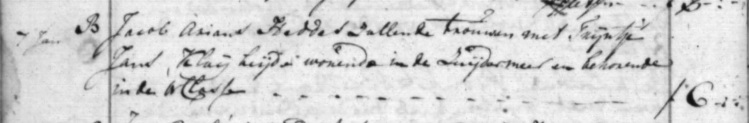 7 Jan B Jacob Arians Hedde Zullende trouwen met Trijntje
Jans Klaij beijde wonende in de Zuijdermeer en behorende
in de Classe - - - - - - - - - - f 6 - : -